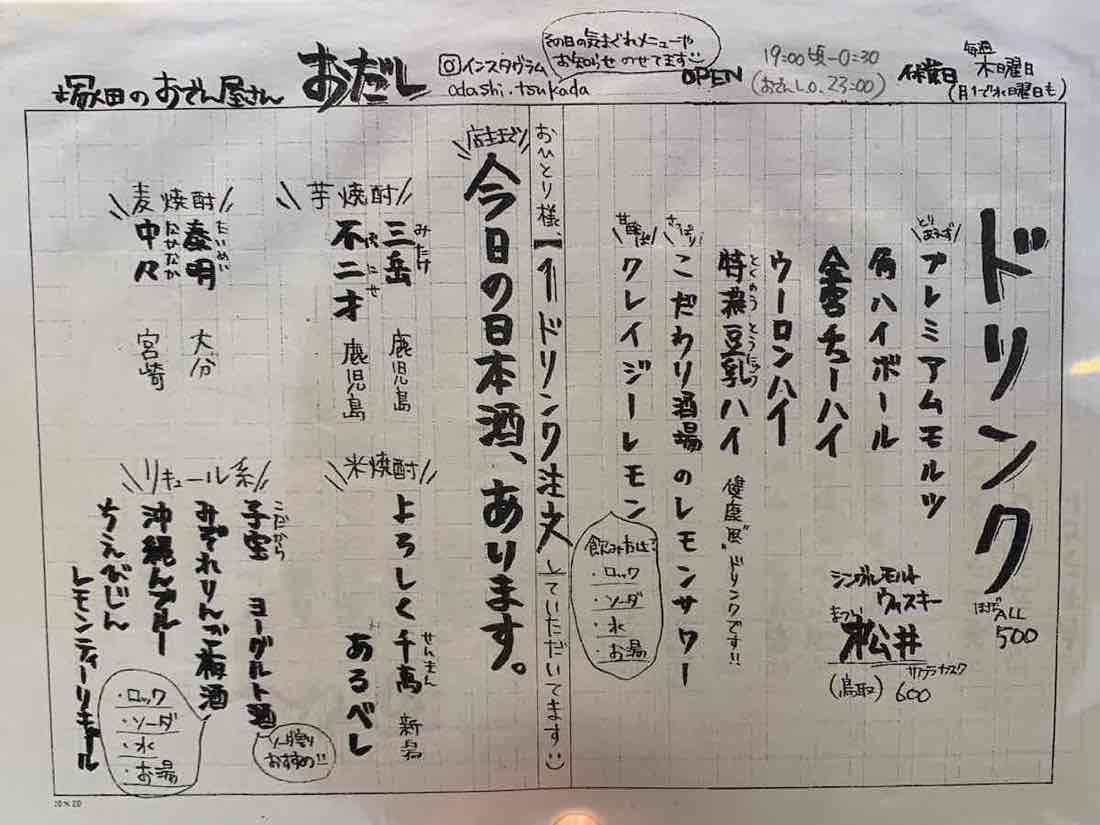 塚田のおでん屋さん おだし
インスタグラム
odashi.tsukada
その日の気まぐれメニューや
お知らせのせてます
OPEN
19:00頃-0:30
(おでんL.O.23:00)
休業日
毎週
木曜日
(月1で水曜日も)
ドリンク
ほぼALL
500
とりあえず
プレミアムモルツ
角ハイボール
金宮チューハイ
ウーロンハイ
特濃豆乳ハイ
とくのう とうにゅう
健康風ドリンクです!!
さっぱり
こだわり酒場のレモンサワー
甘酸っぱ
クレイジーレモン
シングルモルト
ウィスキー
まつい
松井
サクラカスク
(鳥取) 600
飲み方は?
・ロック
・ソーダ
・水
・お湯
おひとり様、【1ドリンク注文】していただいてます
今日の日本酒、あります。
芋焼酎
みたけ
三岳 鹿児島
不二才 鹿児島
麦焼酎
たいめい
泰明 大分
なかなか
中々 宮崎
米焼酎
よろしく千萬 新潟
あるべし
リキュール系
こだから
子宝 ヨーグルト酒
みぞれりんご梅酒
沖縄んブルー
ちえびじん
レモンティーリキュール
おすすめ!!
・ロック
・ソーダ
・水
・お湯
20×20